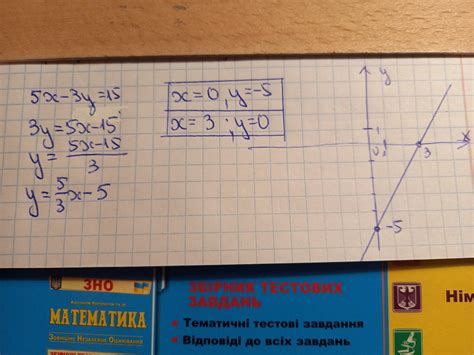 5x-3y=15
3y=5x-15
y=5x-15/3
y=5/3x-5
x=0, y=-5
x=3; y=0
y
x
1
0
1
3
-5
ЗНО
МАТЕМАТИКА
Зовнішнє Незалежне Оцінювання
ЗБІРНИК ТЕСТОВИХ
ЗАВДАНЬ
• Тематичні тестові завдання
• Відповіді до всіх завдань
Нім